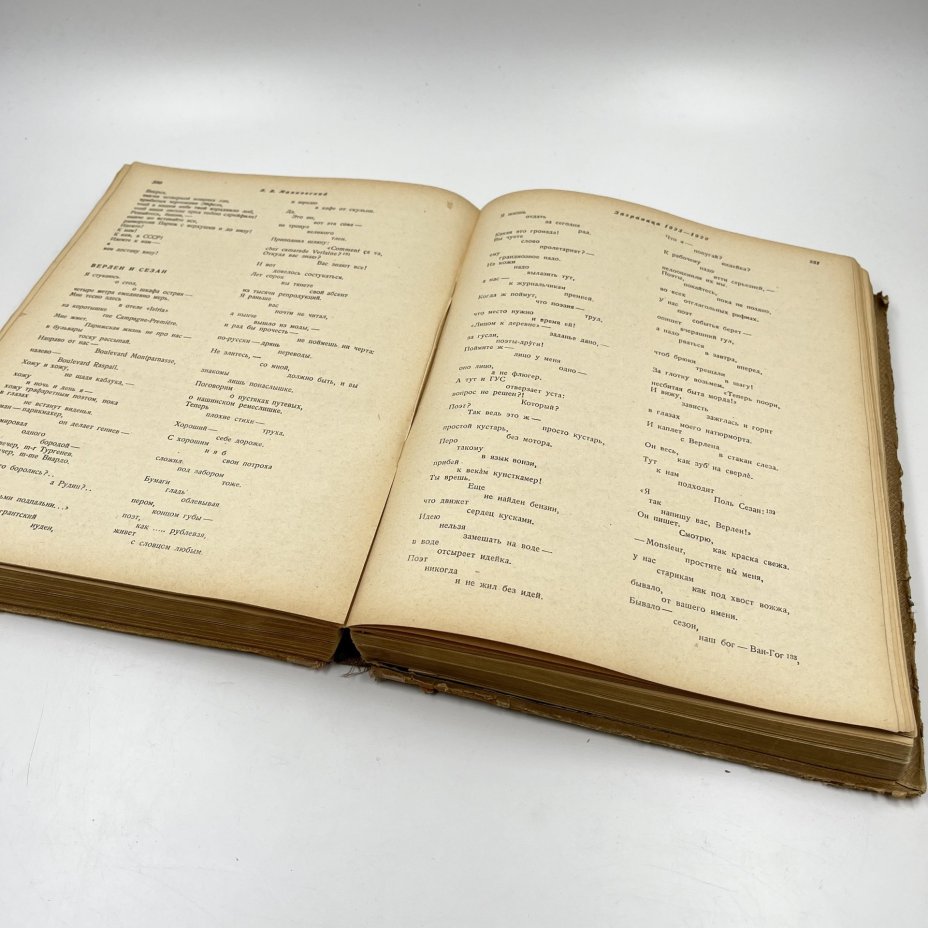 В. В. Маяковский
К вам, в СССР!
ВЕРЛЕН И СЕЗАН
Я стукаюсь
о стол,
о шкафа острия —
четыре метра ежедневно мерь.
Мне тесно здесь
в отеле «Istria»
на коротышке
rue Campagne-Première.
Мне жмет.
Парижская жизнь не про нас —
в бульвары
тоску рассыпай.
Направо от нас —
Boulevard Montparnasse,
налево —
Boulevard Raspail.
Хожу и хожу,
не щадя каблука, —
хожу
и ночь и день я —
хожу трафаретным поэтом, пока
в глазах
не встанут виденья.
— парикмахер,
он делает гениев —
одного
бородой —
m-r Тургенев.
m-me Виардо.
боролись?
а Рудин?..
подпальни...»
нудеж,
в кафе от скульни.
Да,
Это он,
вот эта сова —
не тронул
великого
тлен.
Приподнял шляпу:
«Comment ça va,
cher camarade Verlaine?
Откуда вас знаю?
Вас знают все!
И вот
довелось состукаться.
Лет сорок
вы тянете
свой абсент
из тысячи репродукций.
Я раньше
вас
почти не читал,
а нынче
вышло из моды, —
и рад бы прочесть —
не поймешь ни черта:
по-русски — дрянь,
переводы.
Не злитесь, —
со мной,
должно быть, и вы
знакомы
лишь понаслышке.
Поговорим
о пустяках путевых,
о нашинском ремеслишке.
Теперь
плохие стихи —
труха.
Хороший —
себе дороже.
С хорошим
и я б
свои потроха
сложил
под забором
тоже.
Бумаги
гладь
облевывая
пером,
концом губы —
поэт,
как ..... рублевая,
живет
с словцом любым.
Заграница
331
Я жизнь
отдать
за сегодня
рад.
Какая это громада!
Вы чуете
слово
пролетариат?
ему
грандиозное надо.
Из кожи
надо
вылазить тут,
а нас —
к журнальчикам
премией.
Когда ж поймут,
что поэзия —
труд,
что место нужно
и время ей!
«Лицом к деревне» —
заданье дано, —
за гусли,
поэты-други!
Поймите ж —
лицо у меня
одно —
оно лицо,
а не флюгер.
А тут и ГУС
отверзает уста:
вопрос не решен?!
Который?
Поэт?
Так ведь это ж —
просто кустарь,
простой кустарь,
без мотора.
Перо
такому
в язык вонзи,
прибей
к векам кунсткамер!
Ты врешь,
Еще
не найден бензин,
что движет
сердец кусками.
Идею
нельзя
замешать на воде —
в воде
отсыреет идейка.
Поэт
никогда
и не жил без идей.
Что я —
попугай? индейка?
К рабочему
надо
идти серьезней, —
недооценили их мы.
Поэты,
покайтесь,
пока не поздно,
во всех
отглагольных рифмах.
У нас
поэт
событья берет —
опишет
вчерашний гул,
а надо
рваться
в завтра,
вперед,
чтоб брюки
трещали
в шагу!
«Теперь поори,
несбитая быта морда!»
И вижу,
зависть
зажглась и горит
в глазах
моего натюрморта.
И каплет
с Верлена
в стакан слеза.
Он весь,
как зуб на сверле.
Тут
к нам
подходит
Поль Сезан:
«Я
так
напишу вас, Верлен!»
Он пишет,
Смотрю,
как краска свежа.
— Monsieur,
простите вы меня,
у нас
старикам
как под хвост вожжа,
бывало,
от вашего имени.
Бывало —
сезон,
наш бог — Ван-Гог